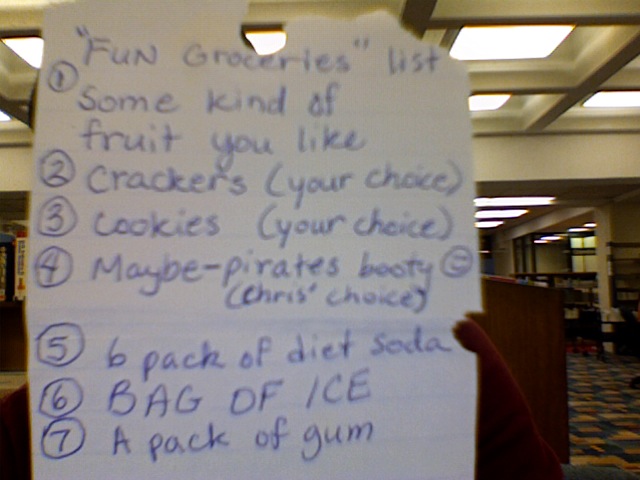 "FUN Groceries" list
① Some kind of
fruit you like
② Crackers (your choice)
③ Cookies (your choice)
④ Maybe-pirates booty
(Chris' choice)
⑤ 6 pack of diet soda
⑥ BAG OF ICE
⑦ A pack of gum